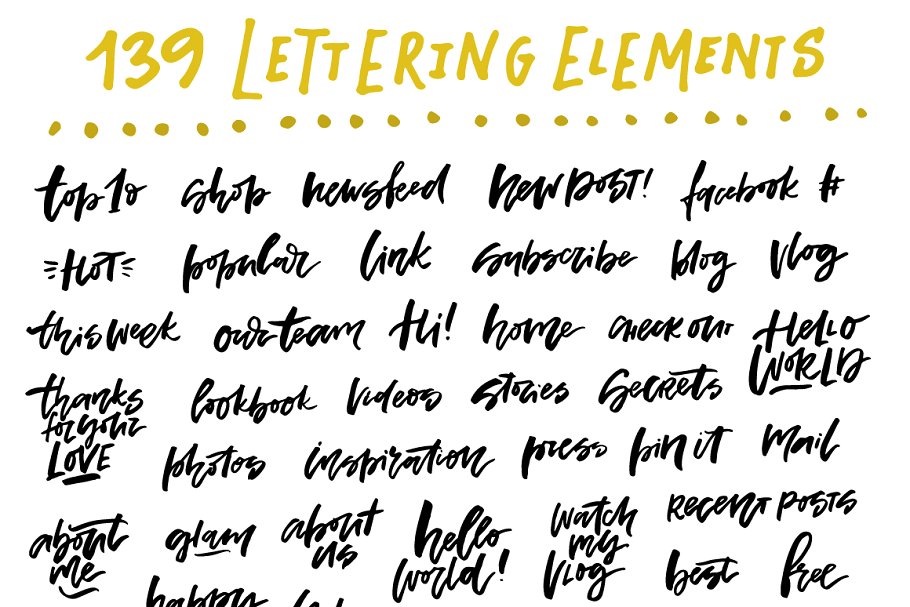 139 LETTERING ELEMENTS
top 10 shop newsfeed new post! facebook #
HOT popular link subscribe blog vlog
this week our team Hi! home check out HELLO
WORLD
thanks
for your
LOVE
lookbook videos stories secrets
photos inspiration press pin it mail
about
me
glam about
us
hello
world!
watch
my
vlog
recent posts
best free
happy